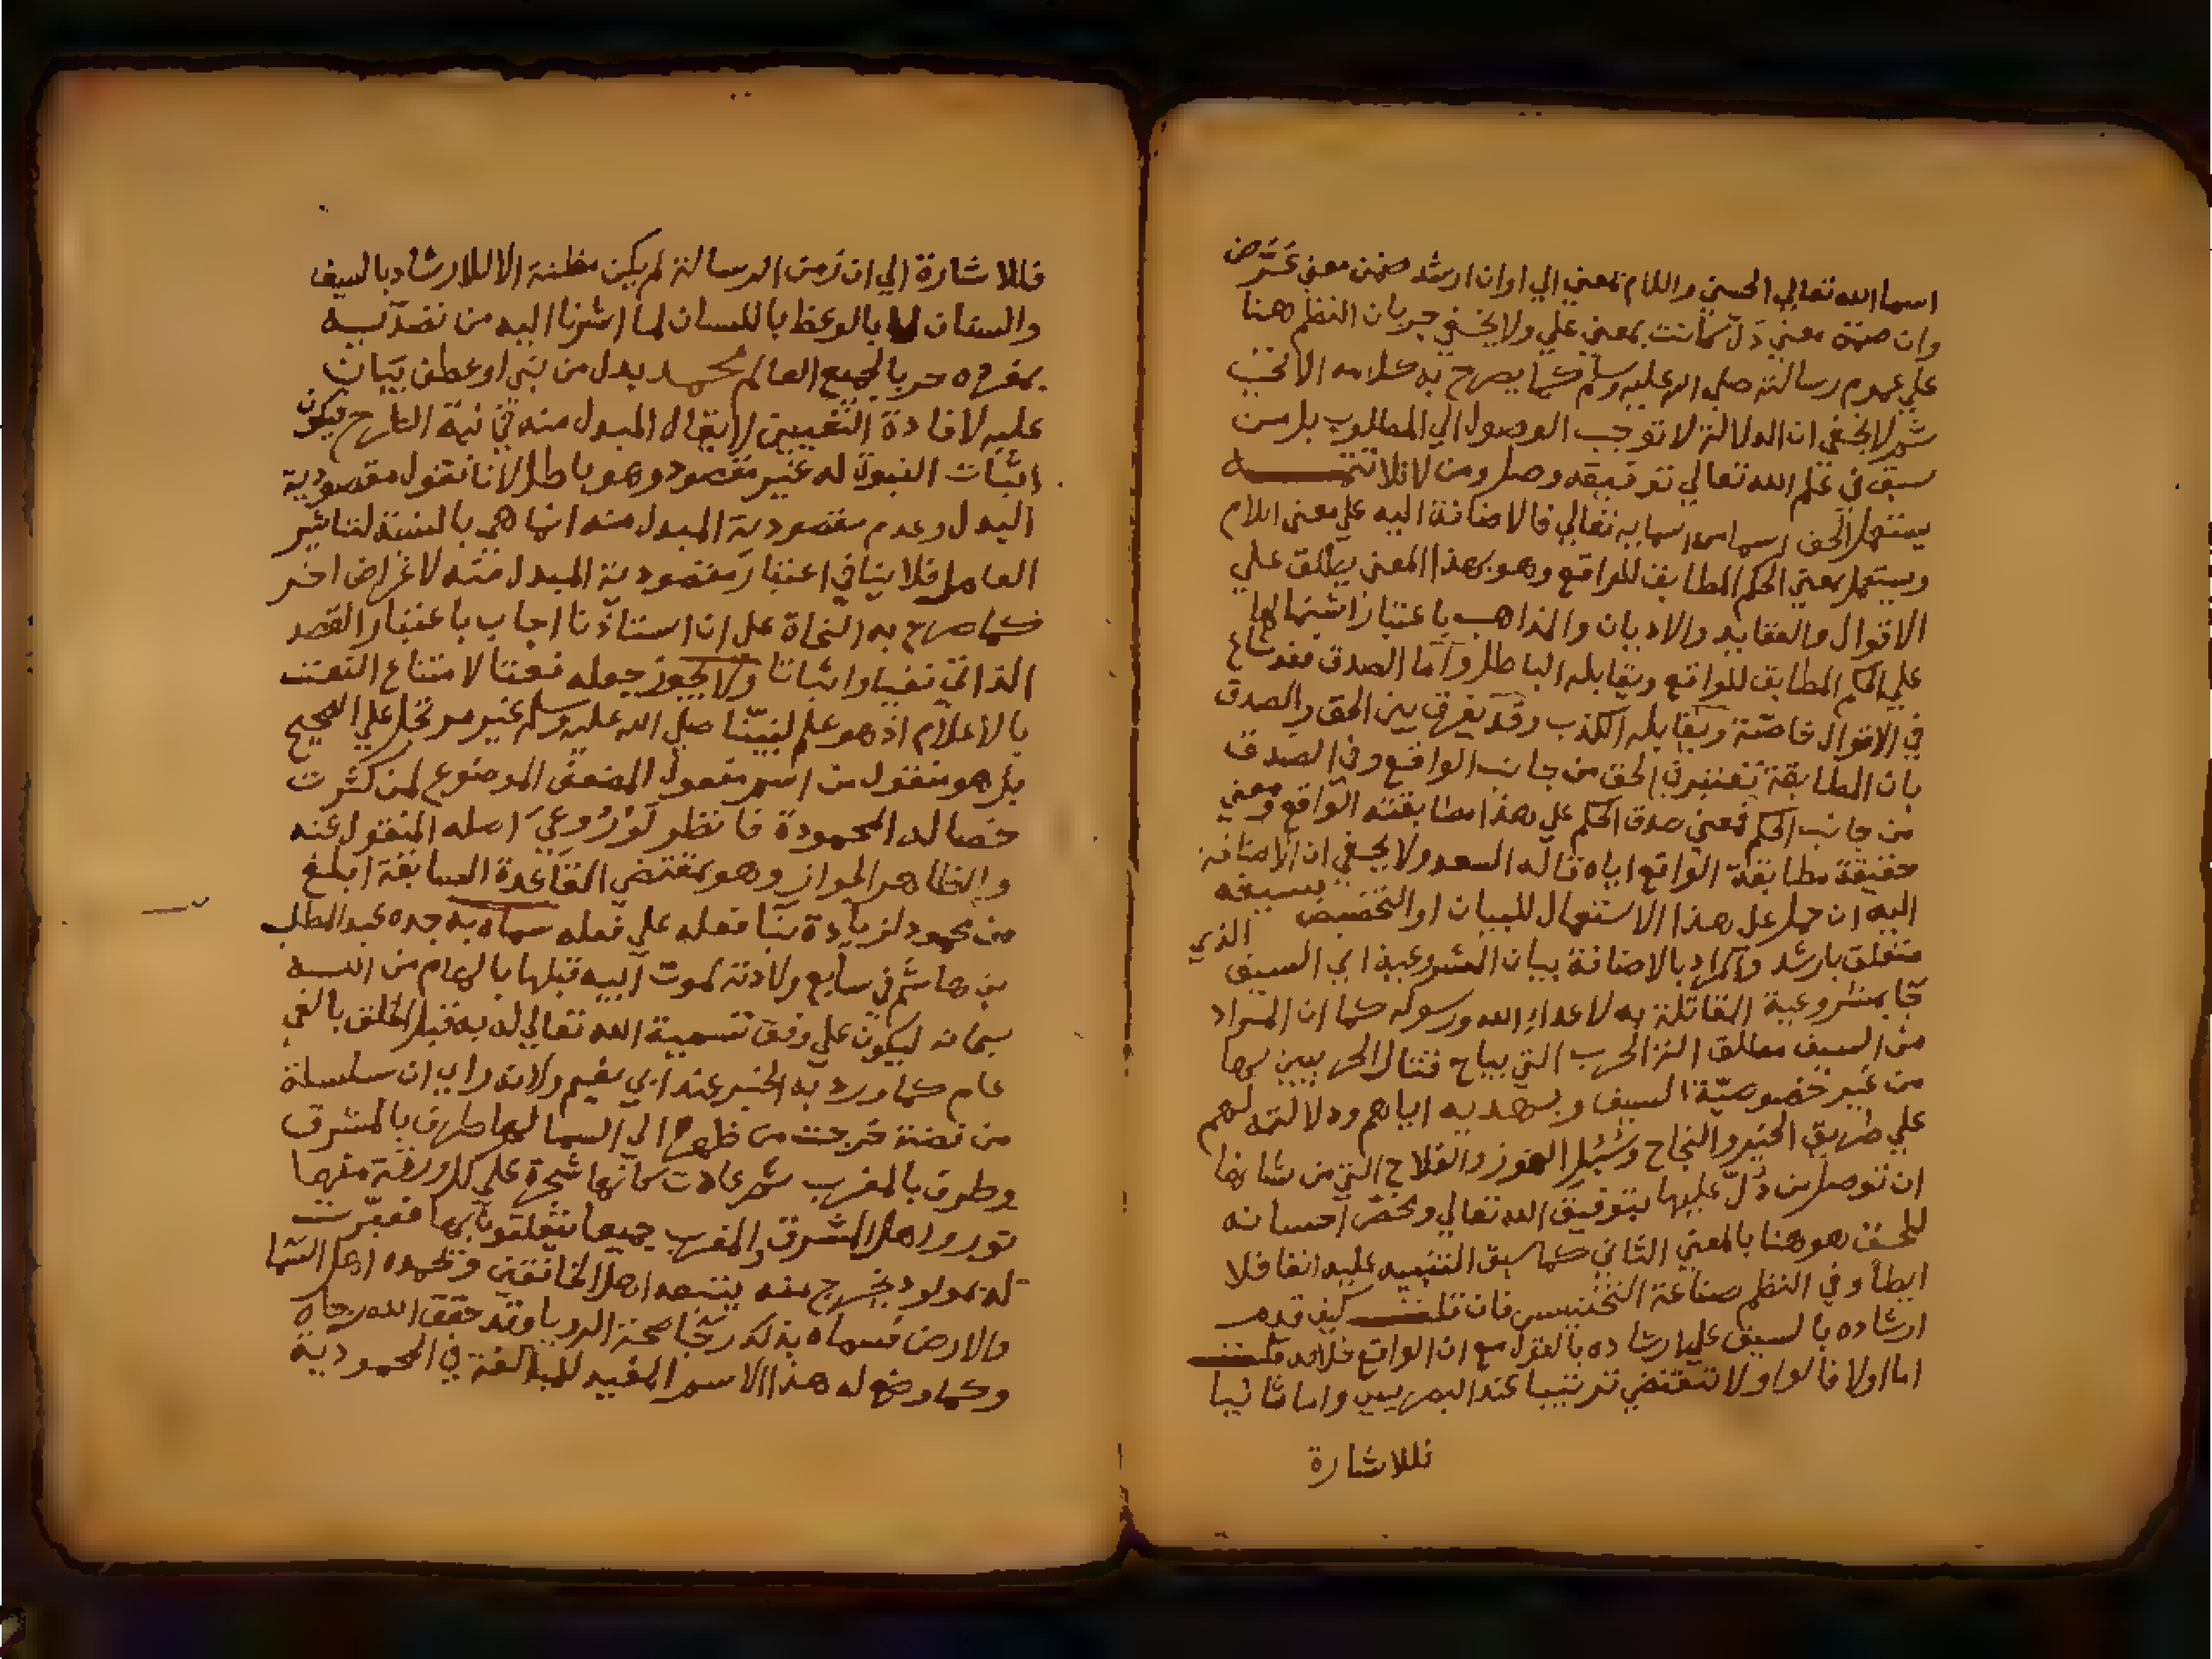 اسما الله تعالي الحسني واللام بمعني الي او ان ارشد ضمن معني عرض
وان ضمن معني دل كانت بمعني علي ولا يخفي جريان النظم هنا
علي عموم رسالته صلي الله عليه وسلم كما يصرح به كلامه الاتي
ثم لا يخفي ان الدلالة لا توجب الوصول الي المطلوب بل من
سبق في علم الله تعالي توفيقه وصل ومن لا فلا تتمه
يستعمل الحق اسما من اسمايه تعالي فالاضافة اليه علي معني اللام
ويستعمل بمعني الحكم المطابق للواقع وهو بهذا المعني يطلق علي
الاقوال والعقايد والاديان والمذاهب باعتبار اشتمالها
علي الحكم المطابق للواقع ويقابله الباطل واما الصدق فقد شاع
في الاقوال خاصة ويقابله الكذب وقد يفرق بين الحق والصدق
بان المطابقة تعتبر في الحق من جانب الواقع وفي الصدق
من جانب الحكم فمعني صدق الحكم علي هذا مطابقته الواقع ومعني
حقيقة مطابقة الواقع اياه قاله السعد ولا يخفي ان الاضافة
اليه ان حمل علي هذا الاستعمال للبيان او التخصيص بسيفه
متعلق بارشد والمراد بالاضافة بيان المشروعية اي السيف الذي
جا بمشروعية المقاتلة به لاعداء الله ورسوله كما ان المراد
من السيف مطلق الة الحرب التي يباح قتال الحربيين بها
من غير خصوصية السيف وبهديه اياهم ودلالته لهم
علي طريق الخير والنجاح وسبل الفوز والفلاح التي من شانها
ان توصل من دل عليها بتوفيق الله تعالي ومحض احسانه
للحق هو هنا بالمعني الثاني كما سبق التنبيه عليه انفا فلا
ايطأ وفي النظم صناعة التجنيس فان قلت كيف قدم
ارشاده بالسيف علي ارشاده بالقول مع ان الواقع خلافه قلت
اما اولا فالواو لا تقتضي ترتيبا عند البصريين واما ثانيا
فللاشارة
فللاشارة الي ان زمن الرسالة لم يكن مظنة الا للارشاد بالسيف
والسنان لا بالوعظ باللسان لما اشرنا اليه من تصديه
بمفرده حربا لجميع العالم محمد بدل من نبي او عطف بيان
عليه لافادة التعيين لا يقال المبدل منه في نية الطرح فيكون
اثبات النبوة له غير مقصود وهو باطل لانا نقول مقصودية
البدل وعدم مقصودية المبدل منه انما هي بالنسبة لتاثير
العامل فلا ينافي اعتبار مقصودية المبدل منه لاغراض اخر
كما صرح به النحاة علي ان استاذنا اجاب باعتبار القصد
الذاتي نفيا واثباتا ولا يجوز جعله نعتا لامتناع النعت
بالاعلام اذ هو علم لنبينا صلي الله عليه وسلم غير مرتجل علي الصحيح
بل هو منقول من اسم مفعول المضعف الموضوع لمن كثرت
خصاله المحمودة فانظر لو روعي اصله المنقول عنه
والظاهر الجواز وهو بمقتضي القاعدة السابقة ابلغ
من محمود لزيادة بنا فعله علي فعله سماه به جده عبد المطلب
بن هاشم في سابع ولادته لموت ابيه قبلها بالهام من الله
سبحانه ليكون علي وفق تسمية الله تعالي له به قبل الخلق بالفي
عام كما ورد به الخبر عند ابي نعيم ولانه راي ان سلسلة
من فضة خرجت من ظهره الي السما لها طرف بالمشرق
وطرف بالمغرب ثم عادت كانها شجرة علي كل ورقة منها
نور واهل المشرق والمغرب جميعا يتعلقون بها فعبرت
له بمولود يخرج منه يتبعه اهل الخافقين وتحمده اهل السما
والارض فسماه بذلك رجا صحة الرويا وقد حقق الله رجاه
وكما وضع له هذا الاسم المفيد للمبالغة في المحمودية